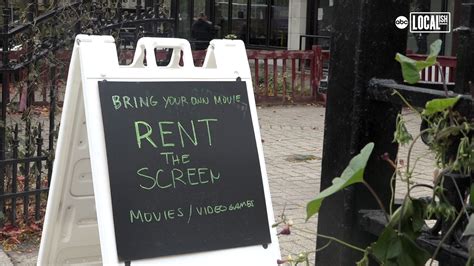 abc LOCALish
BRING YOUR OWN MOVIE
RENT
THE
SCREEN
MOVIES/VIDEO GAMES